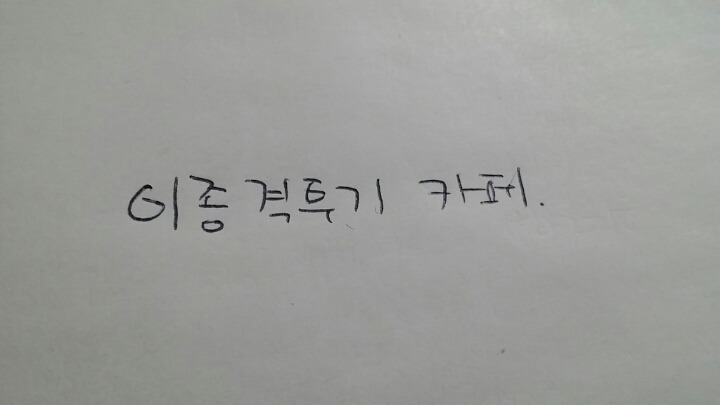 이종격투기 카페.